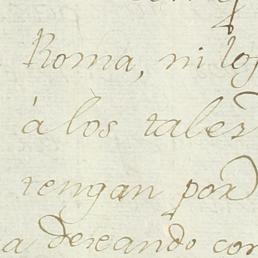 Roma, ni los
à los tales
tengan por
a deseando con